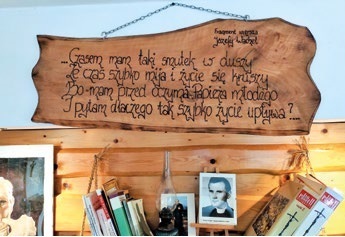 Fragment wiersza
Józefy Wachel
...Czasem mam taki smutek w duszy
Że czas szybko mija i życie się kruszy
Bo mam przed oczyma papieża młodego
I pytam dlaczego tak szybko życie upływa?...